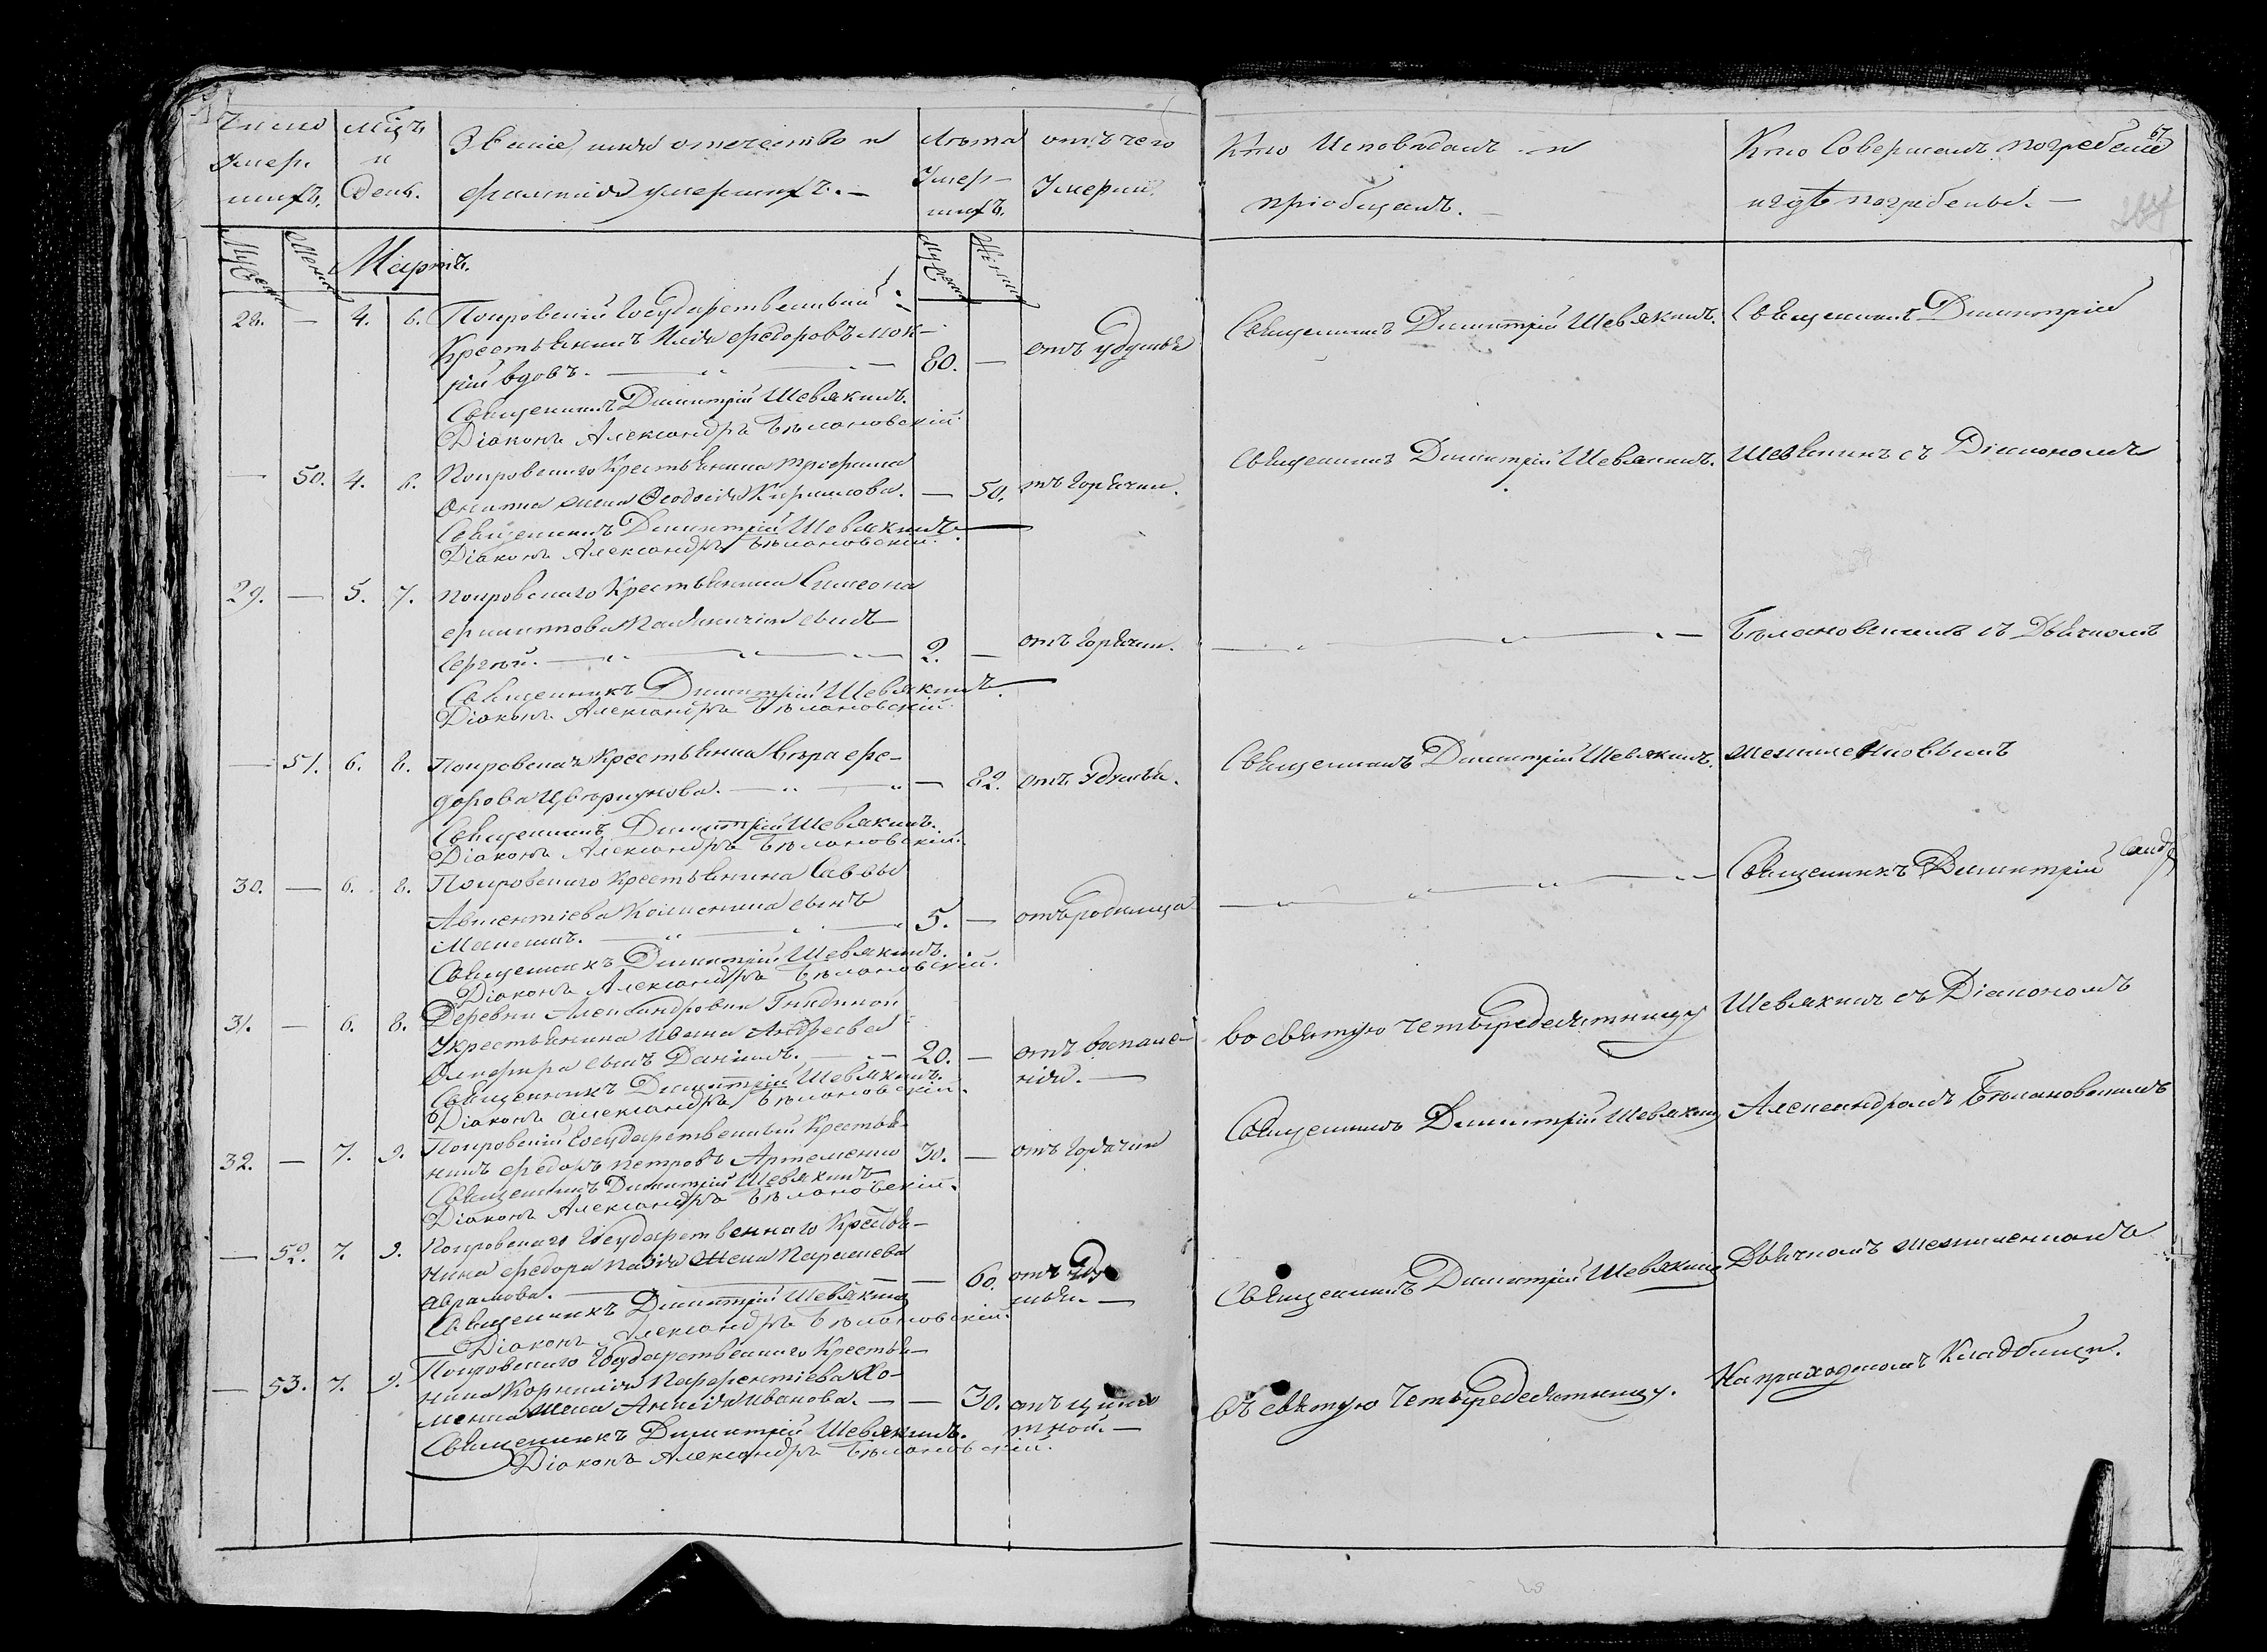 Число Умер. шихъ.
Мѣцъ и День.
Званіе, имя отечество и фамилія умершихъ. —
Лѣта Умер- шихъ.
отъ чего Умерли.
Кто Исповѣдалъ и пріобщалъ. —
Кто Совершалъ погребеніе и гдѣ погребены. —
67
Мужескъ Женскъ
Мартъ.
Мужескъ Женскъ
28. — 4. 6. Покровскій Государственный
Крестьянинъ Илія Федоровъ Мок-
рій вдовъ. — 80. — отъ удушья
Священникъ Димитрій Шевякинъ.
Діаконъ Александръ Бѣлановскій.
— 50. 4. 6. Покровскаго Крестьянина Трофима
жена Ѳеодосія Кириллова. — 50. отъ горячки.
Священникъ Димитрій Шевякинъ.
Діаконъ Александръ Бѣлановскій.
29. — 5. 7. Покровскаго Крестьянина Симеона
сынъ
Сергѣй. — 2. — отъ горячки.
Священникъ Димитрій Шевякинъ.
Діаконъ Александръ Бѣлановскій.
— 51. 6. 8. Покровская Крестьянка Вѣра Фе-
дорова — 82. отъ удушья.
Священникъ Димитрій Шевякинъ.
Діаконъ Александръ Бѣлановскій.
30. — 6. 8. Покровскаго Крестьянина Саввы
Авксентіева сынъ
5. — отъ родимца
Священникъ Димитрій Шевякинъ.
Діаконъ Александръ Бѣлановскій.
31. — 6. 8. Деревни Александровки
Крестьянина Ивана Андреева
сынъ Даніилъ. — 20. — отъ воспале-
нія. —
Священникъ Димитрій Шевякинъ.
Діаконъ Александръ Бѣлановскій.
32. — 7. 9. Покровскій Государственный Крестья-
нинъ Федоръ Петровъ Артеменко 30. — отъ горячки
Священникъ Димитрій Шевякинъ.
Діаконъ Александръ Бѣлановскій.
— 52. 7. 9. Покровскаго Государственнаго Крестья-
нина Федора жена
Аврамова. — 60. отъ уду
шья. —
Священникъ Димитрій Шевякинъ
Діаконъ Александръ Бѣлановскій.
— 53. 7. 9. Покровскаго Государственнаго Крестья-
нина Корнилія Парфентіева Хо-
менка жена Анисія Иванова. — 30. отъ
Священникъ Димитрій Шевякинъ.
Діаконъ Александръ Бѣлановскій.
Священникъ Димитрій Шевякинъ.
Священникъ Димитрій Шевякинъ.
Священникъ Димитрій Шевякинъ.
Во святую четыредесятницу
Священникъ Димитрій Шевякинъ
Священникъ Димитрій Шевякинъ
Въ святую четыредесятницу.
Священникъ Димитрій
Шевякинъ съ Діакономъ
Бѣлановскимъ съ Дьячкомъ
Священникъ Димитрій
Шевякинъ съ Діакономъ
Александромъ Бѣлановскимъ
Дьячкомъ
На приходскомъ Кладбищѣ.